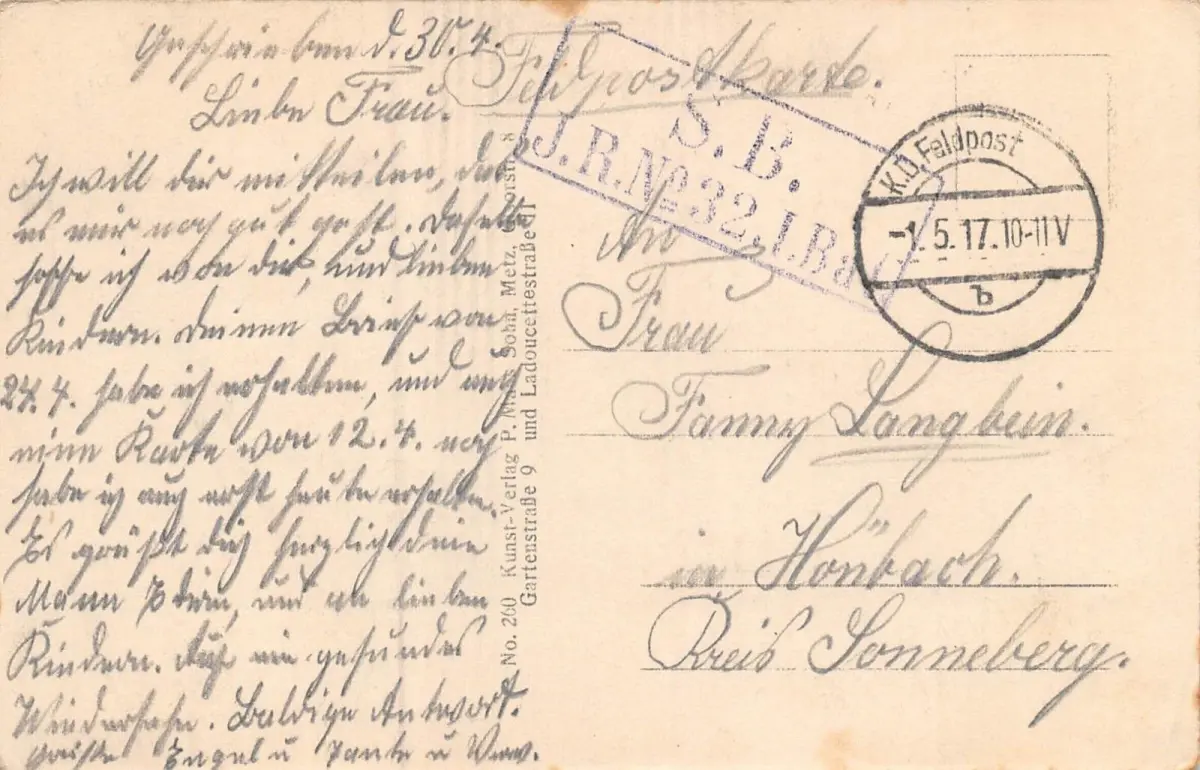 Geschrieben d. 30.4.
Liebe Frau.
Ich will dir mitteilen, das
es mir noch gut geht. Daselbe
hoffe ich von dir, und lieben
Kindern. Deinen Brief von
24.4. habe ich erhalten, und auch
eine Karte von 12.4. noch
habe ich auch erst heute erhalten.
Es grüßt dich herzlich dein
Mann, und an lieben
Kindern. Auf ein gesundes
Wiedersehn. Baldige Antwort.
Grüße Engel u Tante u
Feldpostkarte.
S. B.
J. R. No 32, I. Bat
K.D. Feldpost
-1.5.17.10-11V
b
An
Frau
Fanny Langbein.
in Hönbach.
Kreis Sonneberg.
No. 260 Kunst-Verlag P. Sohn, Metz,
Gartenstraße 9 und Ladoucettestraße